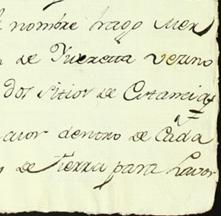 nombre hago Mer
de Vuestra vezino
dos sitios de Estancia
aior dentro de Cada
de tierra para Lavor